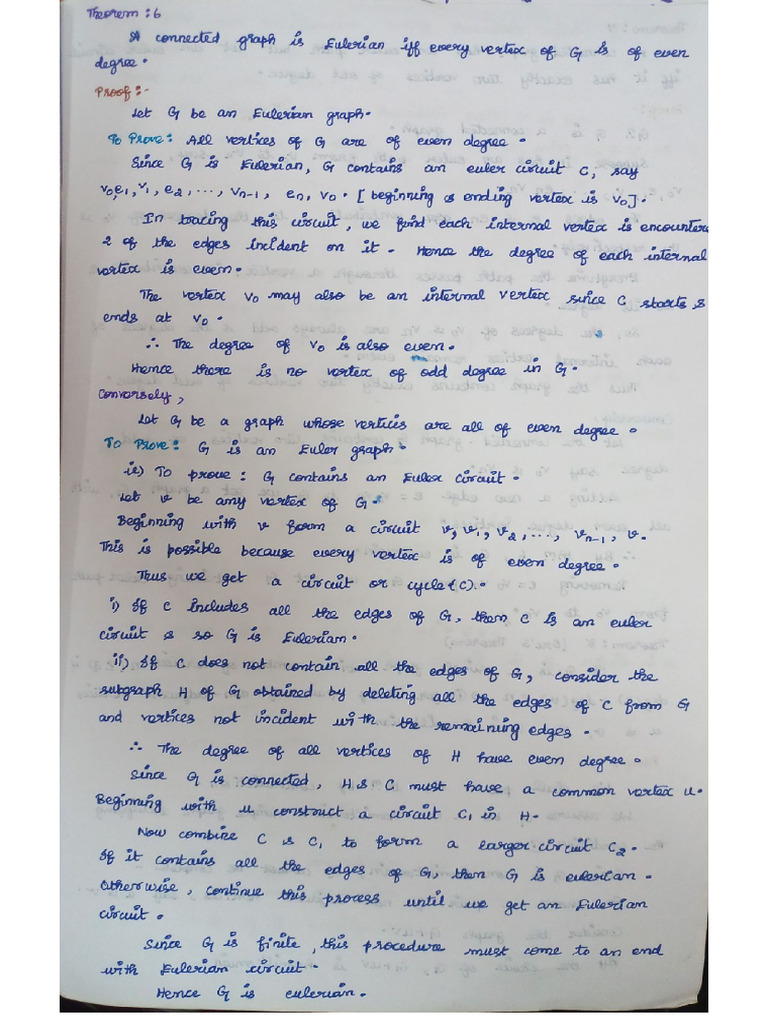 Theorem : 6
A connected graph is Eulerian iff every vertex of G is of even
degree.
Proof:-
Let G be an Eulerian graph.
To Prove: All vertices of G are of even degree.
Since G is Eulerian, G contains an euler circuit C, say
v₀,e₁,v₁, e₂, ..., vₙ₋₁, eₙ, v₀. [beginning & ending vertex is v₀].
In tracing this circuit, we find each internal vertex is encounter
2 of the edges incident on it. Hence the degree of each internal
vertex is even.
The vertex v₀ may also be an internal vertex since C starts &
ends at v₀.
∴ The degree of v₀ is also even.
Hence there is no vertex of odd degree in G.
Conversely,
Let G be a graph whose vertices are all of even degree.
To Prove: G is an Euler graph.
ie) To prove: G contains an Euler circuit.
Let v be any vertex of G.
Beginning with v form a circuit v, v₁, v₂, ..., vₙ₋₁, v.
This is possible because every vertex is of even degree.
Thus we get a circuit or cycle (C).
i) If C includes all the edges of G, then C is an euler
circuit & so G is Eulerian.
ii) If C does not contain all the edges of G, consider the
subgraph H of G obtained by deleting all the edges of C from G
and vertices not incident with the remaining edges.
∴ The degree of all vertices of H have even degree.
Since G is connected, H & C must have a common vertex u.
Beginning with u construct a circuit C₁ in H.
Now combine C & C₁ to form a larger circuit C₂.
If it contains all the edges of G, then G is eulerian.
Otherwise, continue this process until we get an Eulerian
circuit.
Since G is finite, this procedure must come to an end
with Eulerian circuit.
Hence G is eulerian.